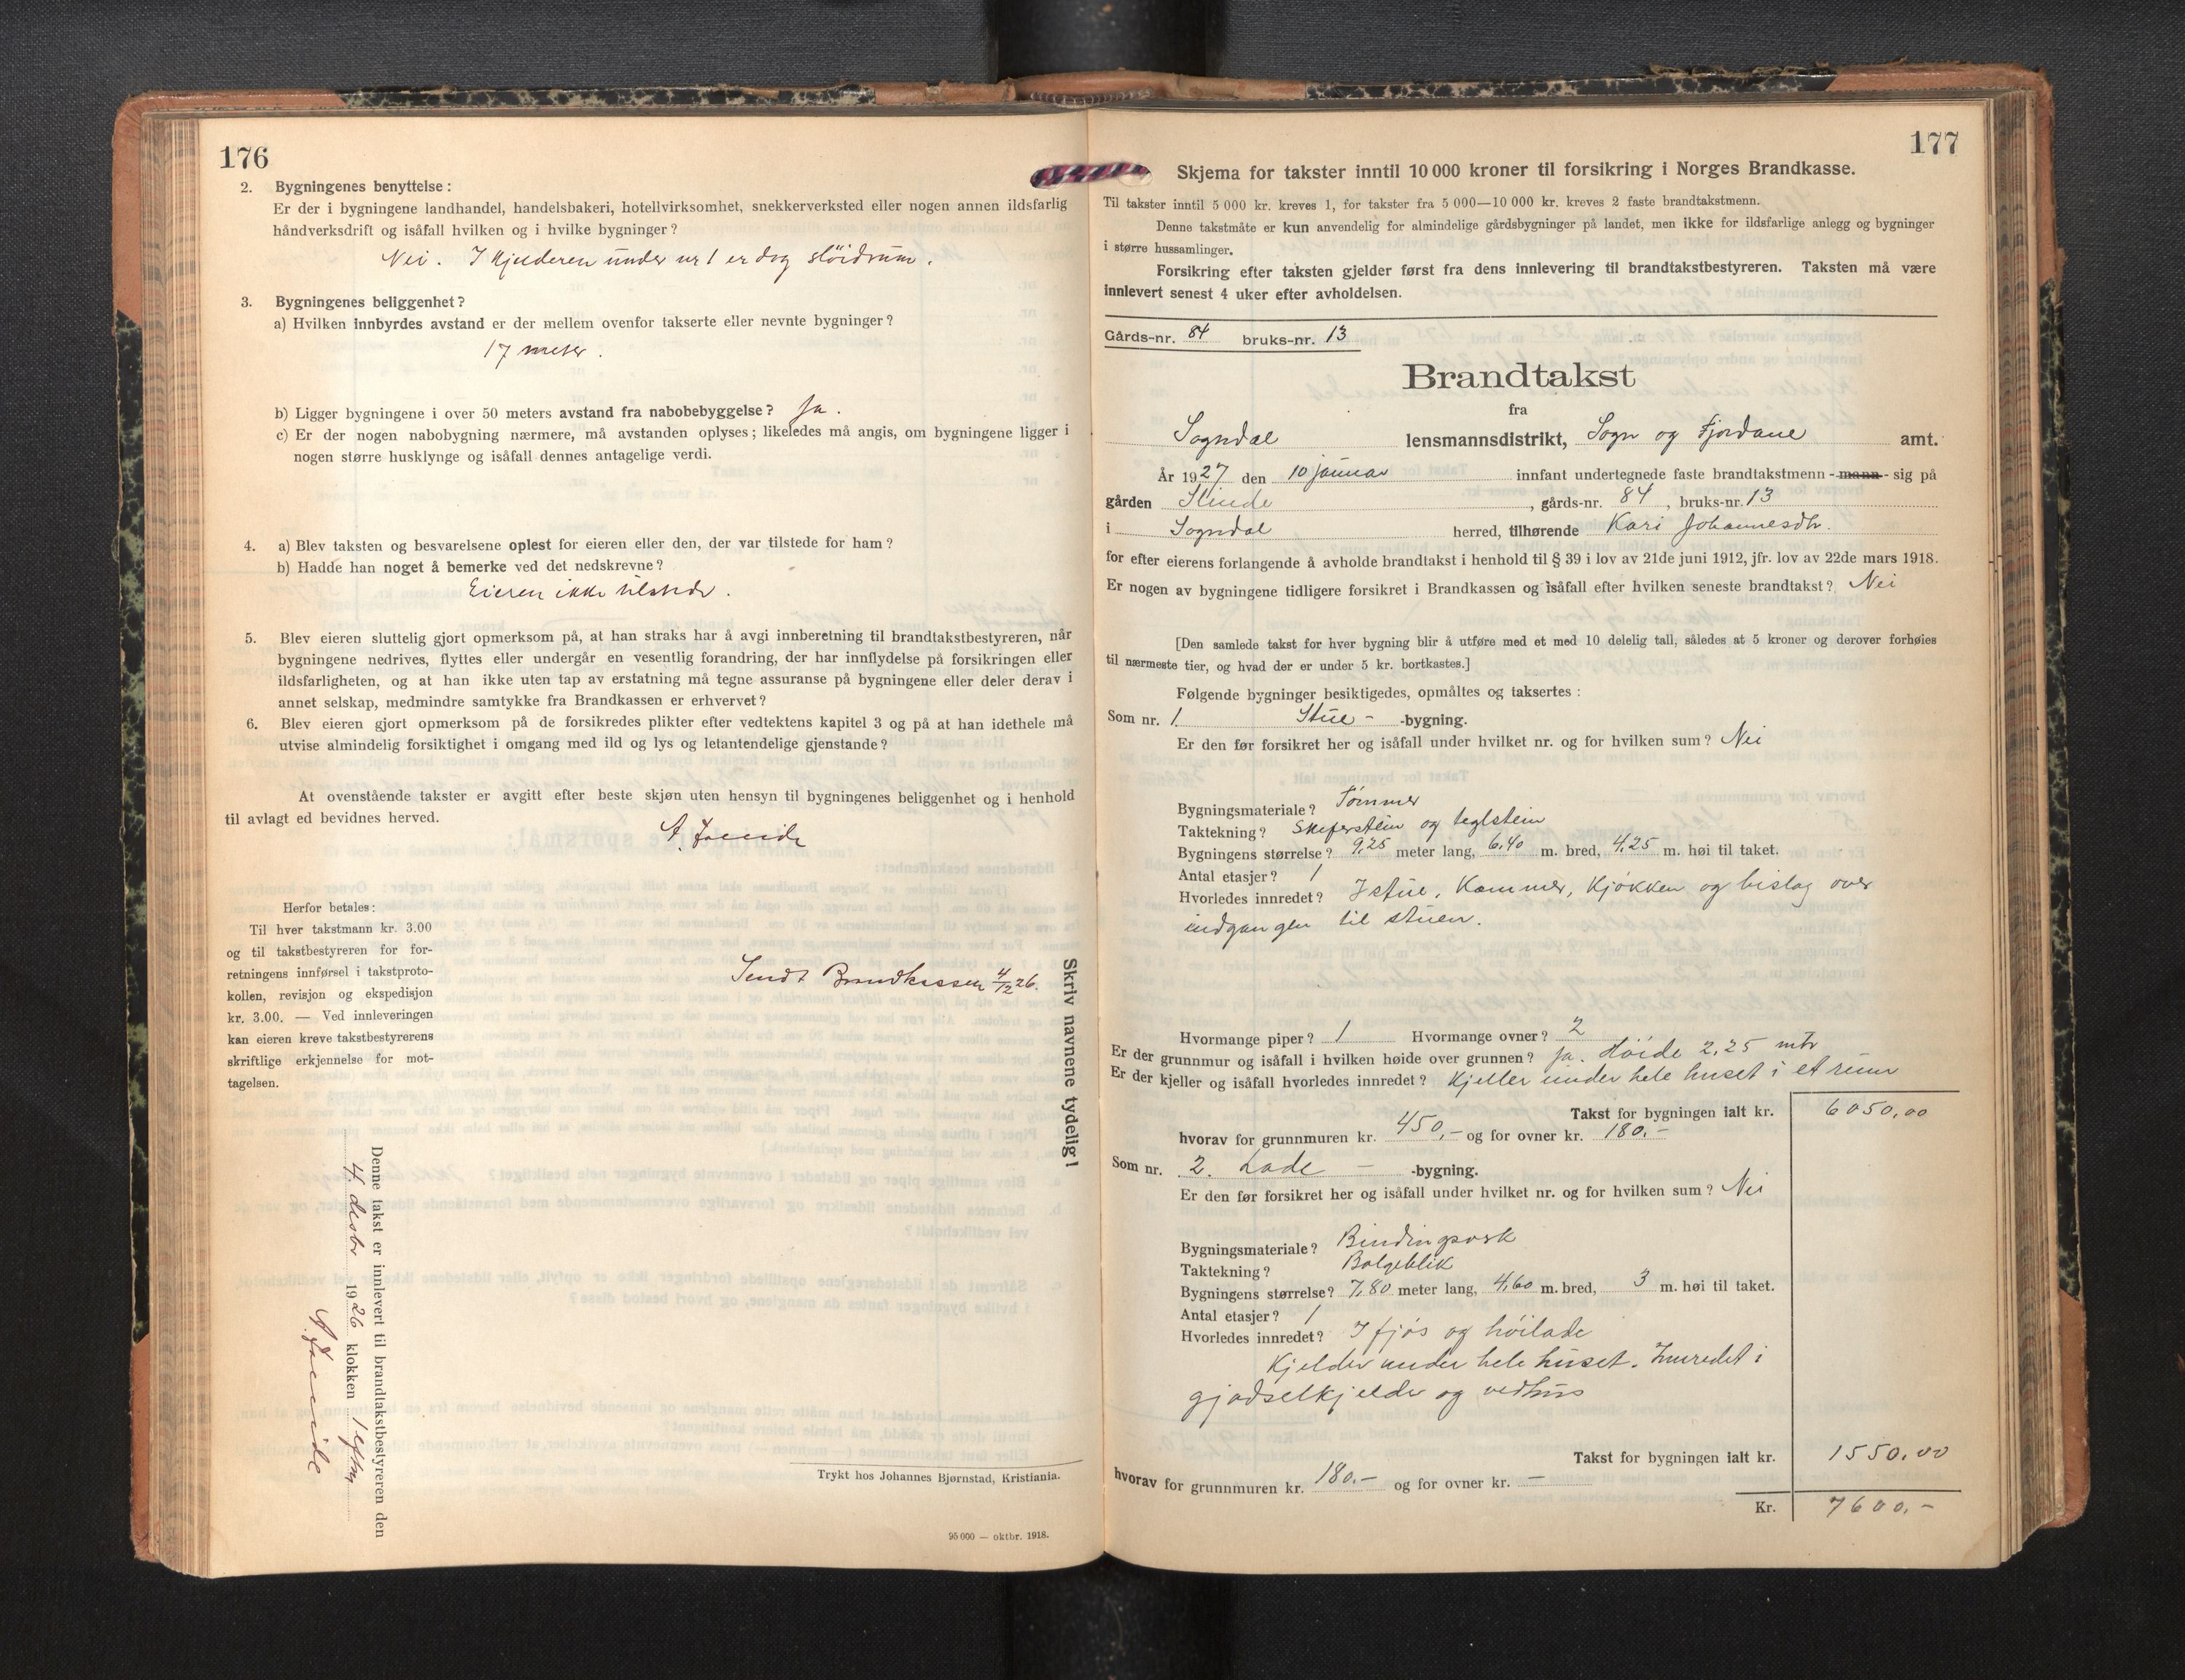 176
2. Bygningenes benyttelse:
Er der i bygningene landhandel, handelsbakeri, hotellvirksomhet, snekkerverksted eller nogen annen ildsfarlig
håndverksdrift og isåfall hvilken og i hvilke bygninger?
Nei. I kjelderen under nr 1 er dog slöidrum.
3. Bygningenes beliggenhet?
a) Hvilken innbyrdes avstand er der mellem ovenfor takserte eller nevnte bygninger?
17 meter.
b) Ligger bygningene i over 50 meters avstand fra nabobebyggelse? Ja.
c) Er der nogen nabobygning nærmere, må avstanden oplyses; likeledes må angis, om bygningene ligger i
nogen større husklynge og isåfall dennes antagelige verdi.
4. a) Blev taksten og besvarelsene oplest for eieren eller den, der var tilstede for ham?
b) Hadde han noget å bemerke ved det nedskrevne?
Eieren ikke tilstede.
5. Blev eieren sluttelig gjort opmerksom på, at han straks har å avgi innberetning til brandtakstbestyreren, når
bygningene nedrives, flyttes eller undergår en vesentlig forandring, der har innflydelse på forsikringen eller
ildsfarligheten, og at han ikke uten tap av erstatning må tegne assuranse på bygningene eller deler derav i
annet selskap, medmindre samtykke fra Brandkassen er erhvervet?
6. Blev eieren gjort opmerksom på de forsikredes plikter efter vedtektens kapitel 3 og på at han idethele må
utvise almindelig forsiktighet i omgang med ild og lys og letantendelige gjenstande?
At ovenstående takster er avgitt efter beste skjøn uten hensyn til bygningenes beliggenhet og i henhold
til avlagt ed bevidnes herved.
Herfor betales:
Til hver takstmann kr. 3.00
og til takstbestyreren for for-
retningens innførsel i takstproto-
kollen, revisjon og ekspedisjon
kr. 3.00. — Ved innleveringen
kan eieren kreve takstbestyrerens
skriftlige erkjennelse for mot-
tagelsen.
Sendt Brandkassen 4/12 26.
Skriv navnene tydelig!
Denne takst er innlevert til brandtakstbestyreren den
4. desbr 1926 klokken 1 eftm
Trykt hos Johannes Bjørnstad, Kristiania.
95 000 — oktbr. 1918.
177
Skjema for takster inntil 10 000 kroner til forsikring i Norges Brandkasse.
Til takster inntil 5 000 kr. kreves 1, for takster fra 5 000—10 000 kr. kreves 2 faste brandtakstmenn.
Denne takstmåte er kun anvendelig for almindelige gårdsbygninger på landet, men ikke for ildsfarlige anlegg og bygninger
i større hussamlinger.
Forsikring efter taksten gjelder først fra dens innlevering til brandtakstbestyreren. Taksten må være
innlevert senest 4 uker efter avholdelsen.
Gårds-nr. 84 bruks-nr. 13
Brandtakst
fra
Sogndal lensmannsdistrikt, Sogn og Fjordane amt.
År 1927 den 10 januar innfant undertegnede faste brandtakstmenn - mann - sig på
gården Stinde, gårds-nr. 84, bruks-nr. 13
i Sogndal herred, tilhørende Kari Johannesdtr.
for efter eierens forlangende å avholde brandtakst i henhold til § 39 i lov av 21de juni 1912, jfr. lov av 22de mars 1918.
Er nogen av bygningene tidligere forsikret i Brandkassen og isåfall efter hvilken seneste brandtakst? Nei
[Den samlede takst for hver bygning blir å utføre med et med 10 delelig tall, således at 5 kroner og derover forhøies
til nærmeste tier, og hvad der er under 5 kr. bortkastes.]
Følgende bygninger besiktigedes, opmåltes og taksertes:
Som nr. 1. Stue - -bygning.
Er den før forsikret her og isåfall under hvilket nr. og for hvilken sum? Nei
Bygningsmateriale? Tømmer
Taktekning? Skiferstein og teglstein
Bygningens størrelse? 9,25 meter lang, 6,40 m. bred, 4,25 m. høi til taket.
Antal etasjer? 1
Hvorledes innredet? I stue, Kammer, Kjøkken og bislag over
indgangen til stuen.
Hvormange piper? 1 Hvormange ovner? 2
Er der grunnmur og isåfall i hvilken høide over grunnen? Ja. Høide 2,25 mtr
Er der kjeller og isåfall hvorledes innredet? Kjeller under hele huset i et rum
Takst for bygningen ialt kr. 6050,00
hvorav for grunnmuren kr. 450,- og for ovner kr. 180,-
Som nr. 2. Lade - -bygning.
Er den før forsikret her og isåfall under hvilket nr. og for hvilken sum? Nei
Bygningsmateriale? Bindingsverk
Taktekning? Bølgeblik
Bygningens størrelse? 7,80 meter lang, 4,60 m. bred, 3 m. høi til taket.
Antal etasjer? 1
Hvorledes innredet? I fjøs og høilade
Kjelder under hele huset. Innredet i
gjødselkjelder og vedhus
Takst for bygningen ialt kr. 1550,00
hvorav for grunnmuren kr. 180.- og for ovner kr. -
Kr. 7600,-